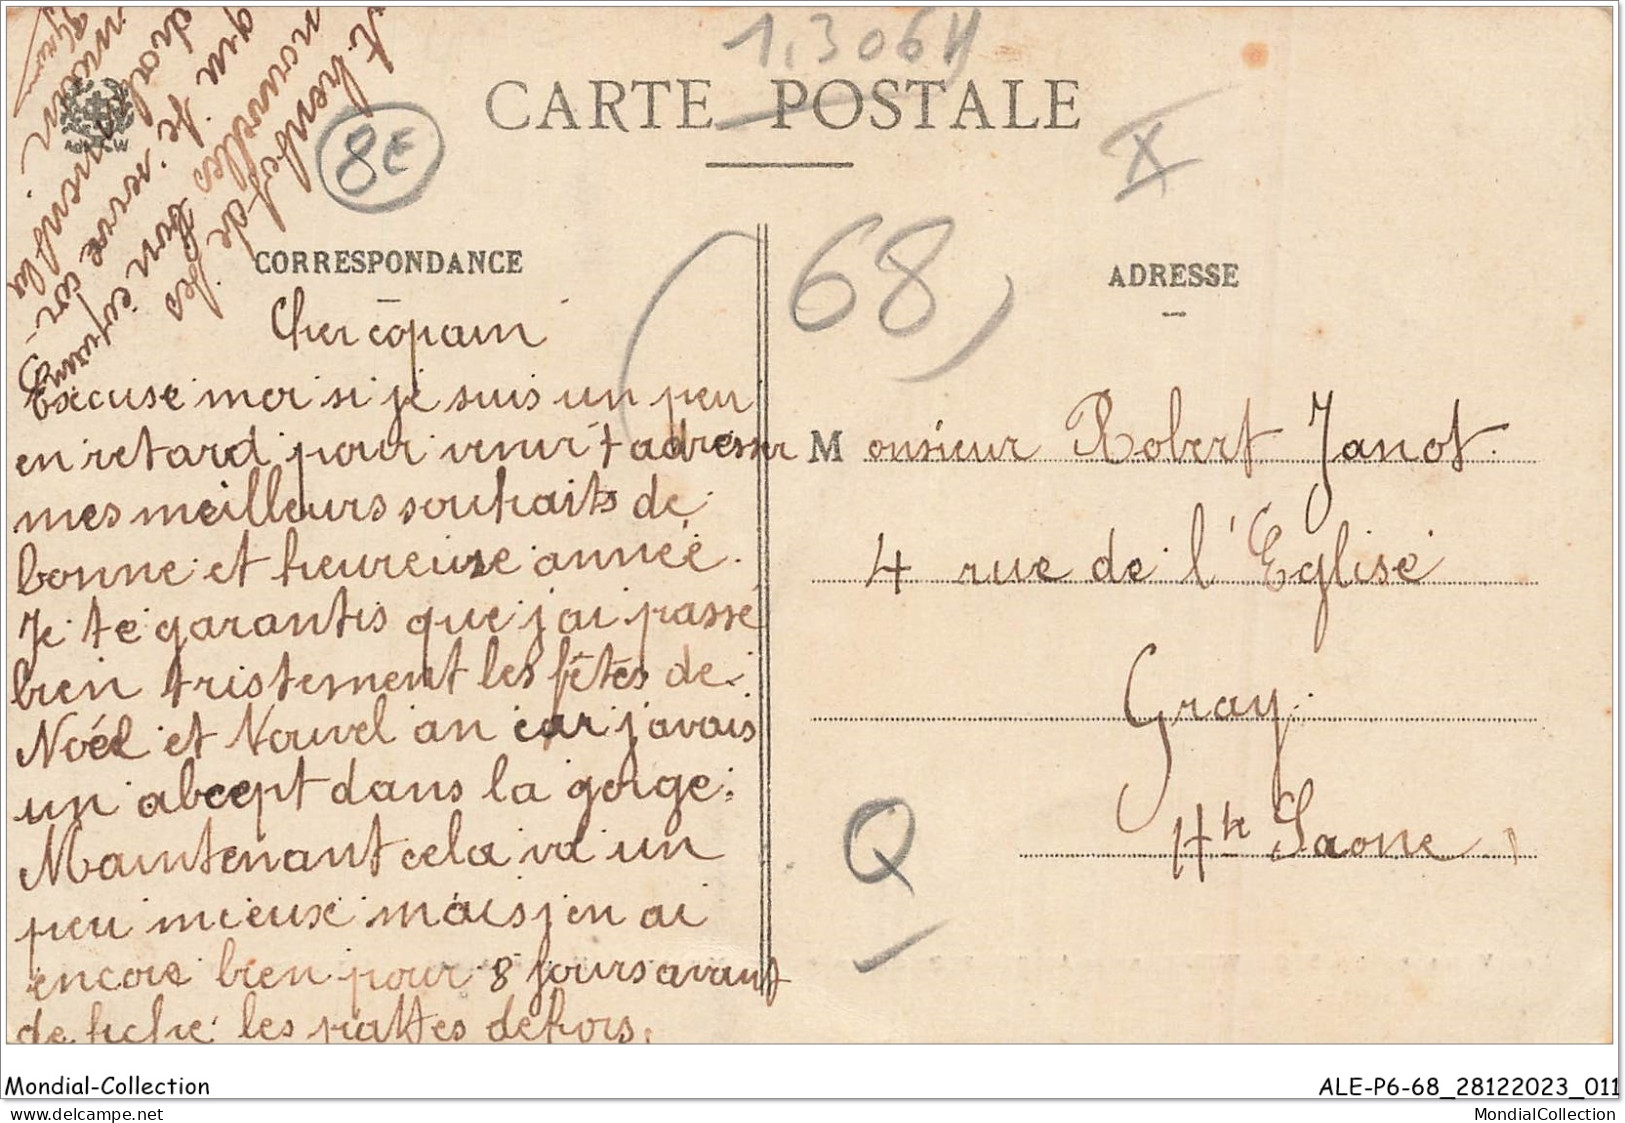 1,306H
CARTE POSTALE
8E
X
68
CORRESPONDANCE
ADRESSE
Cher copain
Excuse moi si je suis un peu
en retard pour venir t adresser
mes meilleurs souhaits de
bonne et heureuse année.
Je te garantis que j ai passé
bien tristement les fêtes de
Noël et Nouvel an car j avais
un abcept dans la gorge.
Maintenant cela va un
peu mieux mais j en ai
encore bien pour 8 jours avant
de fiche les pattes dehors.
bref de
nouvelles
des
que bon
te serre cor-
Monsieur Robert Janot.
4 rue de l'Eglise
Gray.
Hte Saone
Q
Mondial-Collection
ALE-P6-68_28122023_011
delcampe.net
MondialCollection